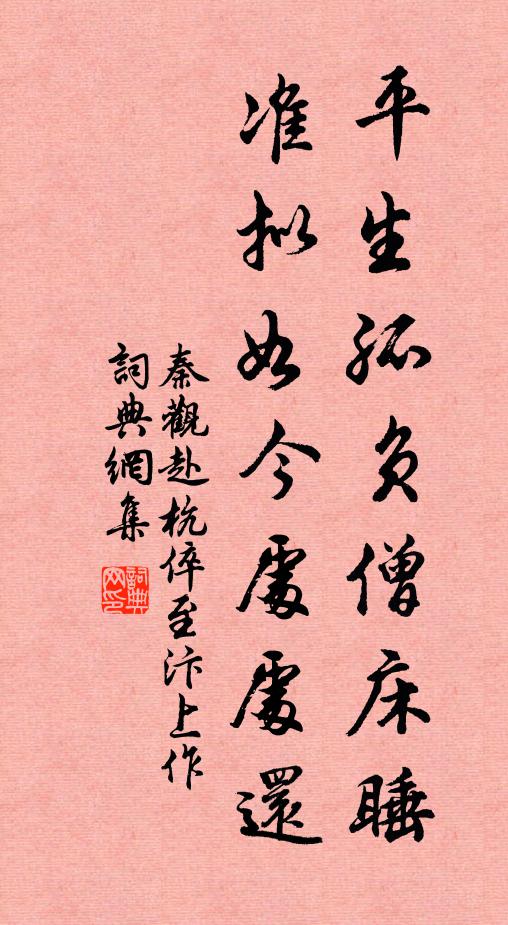 平生孤负僧床睡
准拟如今處處還
秦觀赴杭倅至汴上作
詞典網集
詞典网印